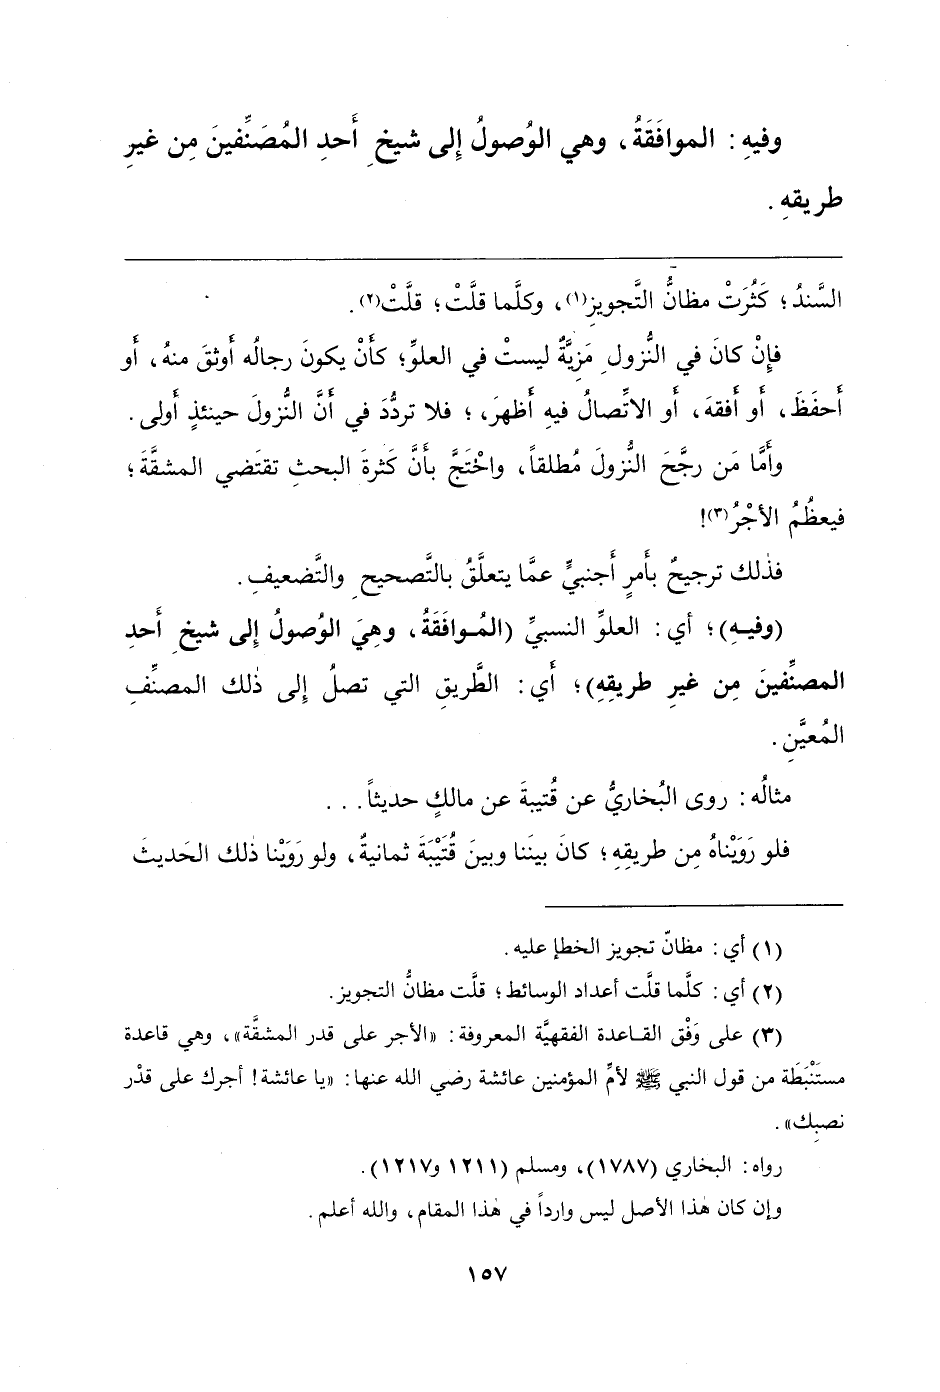 وفيهِ : الموافَقَةُ، وهي الوُصولُ إِلى شيخِ أَحدِ المُصَنِّفينَ مِن غيرِ
طريقهِ .
السَّندُ؛ كَثُرَتْ مظانُّ التَّجويزِ(١)، وكلَّما قلَّتْ؛ قلَّتْ(٢).
فإِنْ كانَ في النُّزولِ مَزِيَّةٌ ليستْ في العلوِّ؛ كأَنْ يكونَ رجالُه أَوثقَ منهُ، أَو
أَحفَظَ، أَو أَفقهَ، أَو الاتِّصالُ فيهِ أَظهرَ،؛ فلا تردُّدَ في أَنَّ النُّزولَ حينئذٍ أَولى.
وأَمَّا مَن رجَّحَ النُّزولَ مُطلقاً، واحْتَجَّ بأَنَّ كَثرةَ البحثِ تقتَضي المشقَّةَ؛
فيعظُمُ الأجْرُ(٣)!
فذٰلك ترجيحٌ بأَمرٍ أَجنبيٍّ عمَّا يتعلَّقُ بالتَّصحيحِ والتَّضعيفِ.
(وفيـهِ)؛ أي: العلوِّ النسبيِّ (المُـوافَقَةُ، وهِيَ الوُصولُ إِلى شيخِ أَحدِ
المصنِّفينَ مِن غيرِ طريقِهِ)؛ أَي: الطَّريقِ التي تصلُ إِلى ذٰلك المصنِّفِ
المُعيَّنِ.
مثالُه: روى البُخاريُّ عن قُتيبةَ عن مالكٍ حديثاً...
فلو رَوَيْناهُ مِن طريقِهِ؛ كانَ بيننا وبينَ قُتَيْبَةَ ثمانيةٌ، ولو رَوَيْنا ذٰلك الحَديثَ
(١) أي: مظانّ تجويز الخطإ عليه.
(٢) أي: كلَّما قلَّت أعداد الوسائط؛ قلَّت مظانُّ التجويز.
(٣) على وَفْق القـاعدة الفقهيَّة المعروفة: «الأجر على قدر المشقَّة»، وهي قاعدة
مستَنْبَطَة من قول النبي ﷺ لأمِّ المؤمنين عائشة رضي الله عنها: «يا عائشة! أجرك على قدْر
نصبِك».
رواه: البخاري (١٧٨٧)، ومسلم (١٢١١ و١٢١٧).
وإن كان هٰذا الأصل ليس وارداً في هٰذا المقام، والله أعلم.
١٥٧